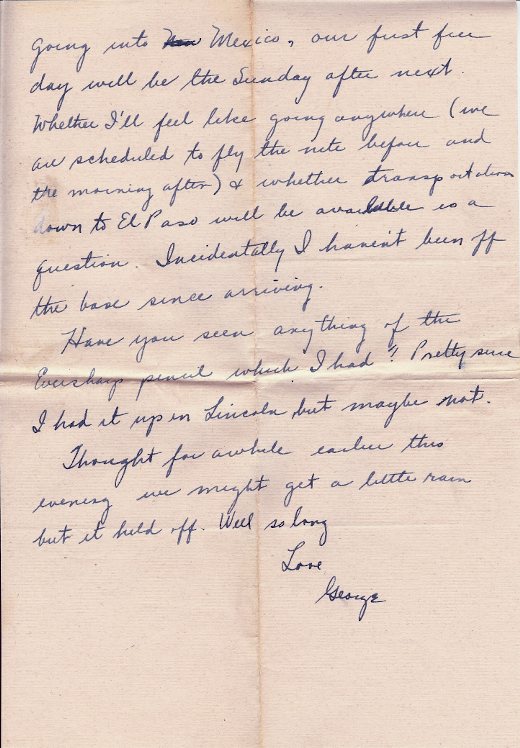 going into New Mexico, our first free
day will be the Sunday after next.
Whether I'll feel like going anywhere (we
are scheduled to fly the nite before and
the morning after) & whether transportation
down to El Paso will be available is a
question. Incidentally I haven't been off
the base since arriving.
Have you seen anything of the
Eversharp pencil which I had? Pretty sure
I had it up in Lincoln, but maybe not.
Thought for awhile earlier this
evening we might get a little rain
but it held off. Well so long
Love
George